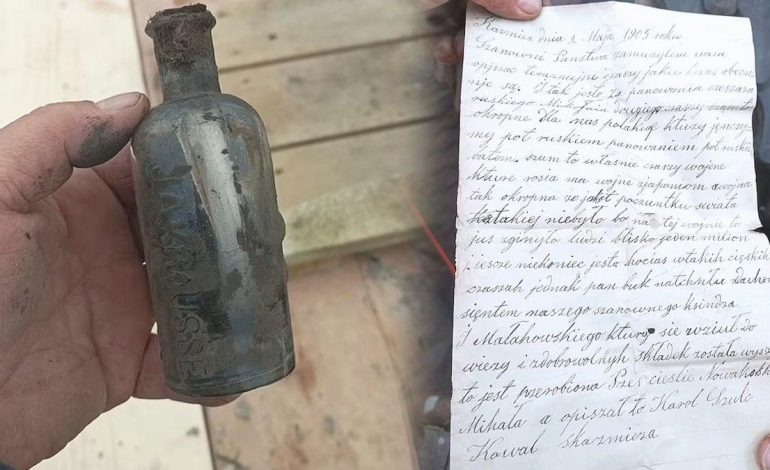 SAUTAUSSE
Kazmierz dnia 9. Maja 1905 roku
Szanowni Państwo zamieżyłem wam
opisać terazniejsze czasy jakie teraz obecnie
nje są. I tak jesto za panowania czeszaza
ruskiego Mikołaia drugiego czasy szom to
okropne dla nas polakuf ktuży jenczy-
mej pot ruskiem panowaniem pot ruskiem
batom. szum to własnie czasy wojene
kture rosia ma wojne zjapaniom a wojna
tak okropna że jak pot poczuntku swiata
takakiej niebyło bo na tej wojnie to
jus zgineło ludzi blisko jeden milion
i jesce niekoniec jesto hocias wtakich cięskich
czasah jednak pan buk natchnilu duchem
sięntem naszego szanownego ksindza
J Małahowskiego ktury sie wziuł do
wieży i zdobrowolnyh składek została wysza
to jest pżerobiona Pżes cieśle Nowahosk
Mihała a opiszał to Karol Szulc
Kowal skazmieza